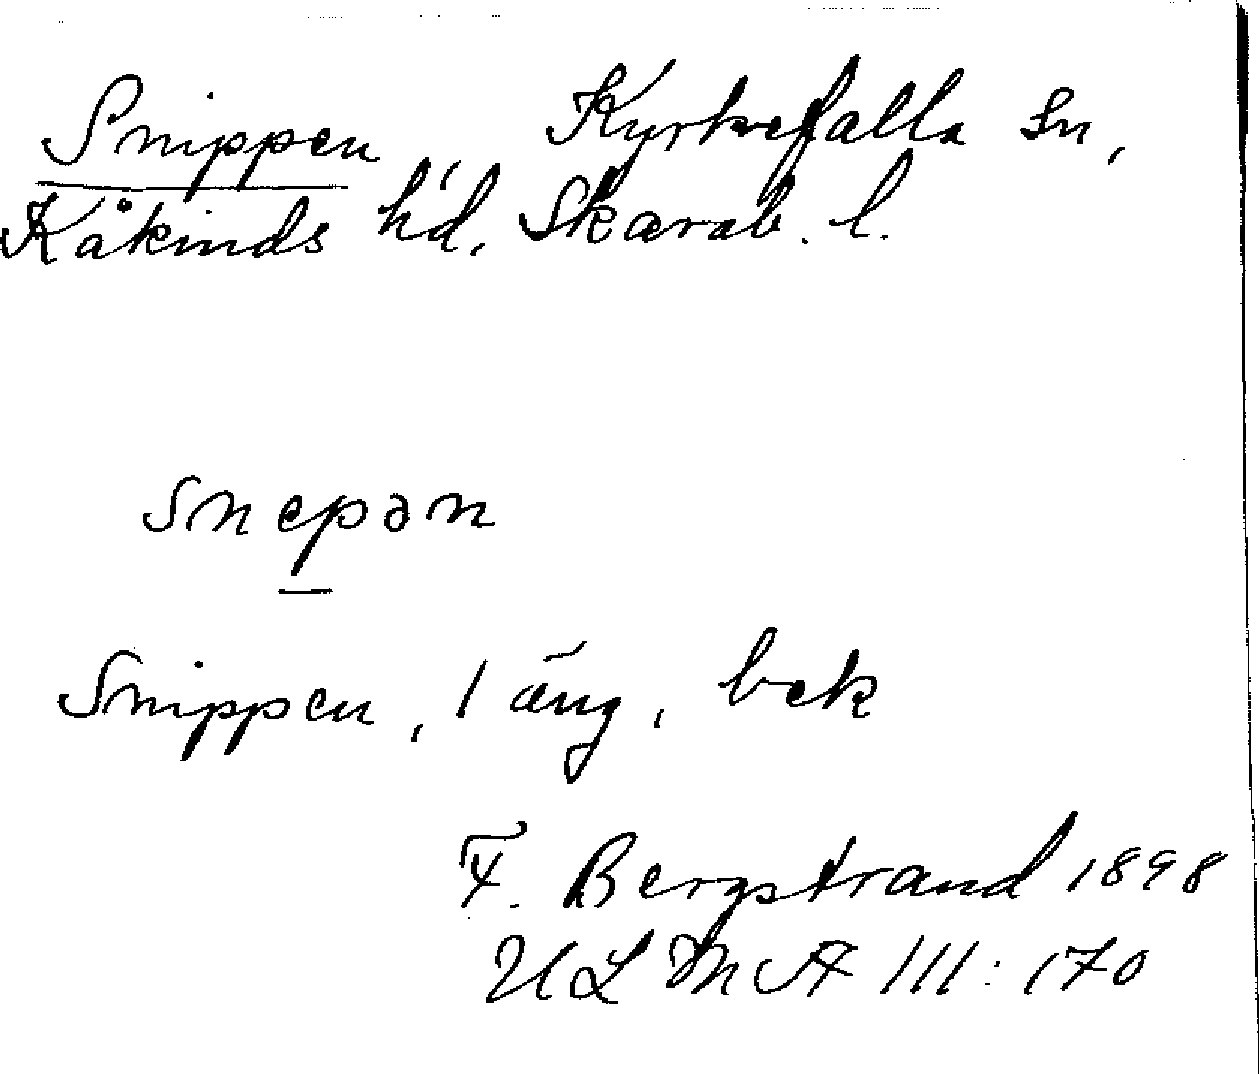 Snippen Kyrkefalla sn,
Kåkinds hd, Skarab. l.
snepən
Snippen, 1 äng, bek
F. Bergstrand 1898
ULMA 111:170